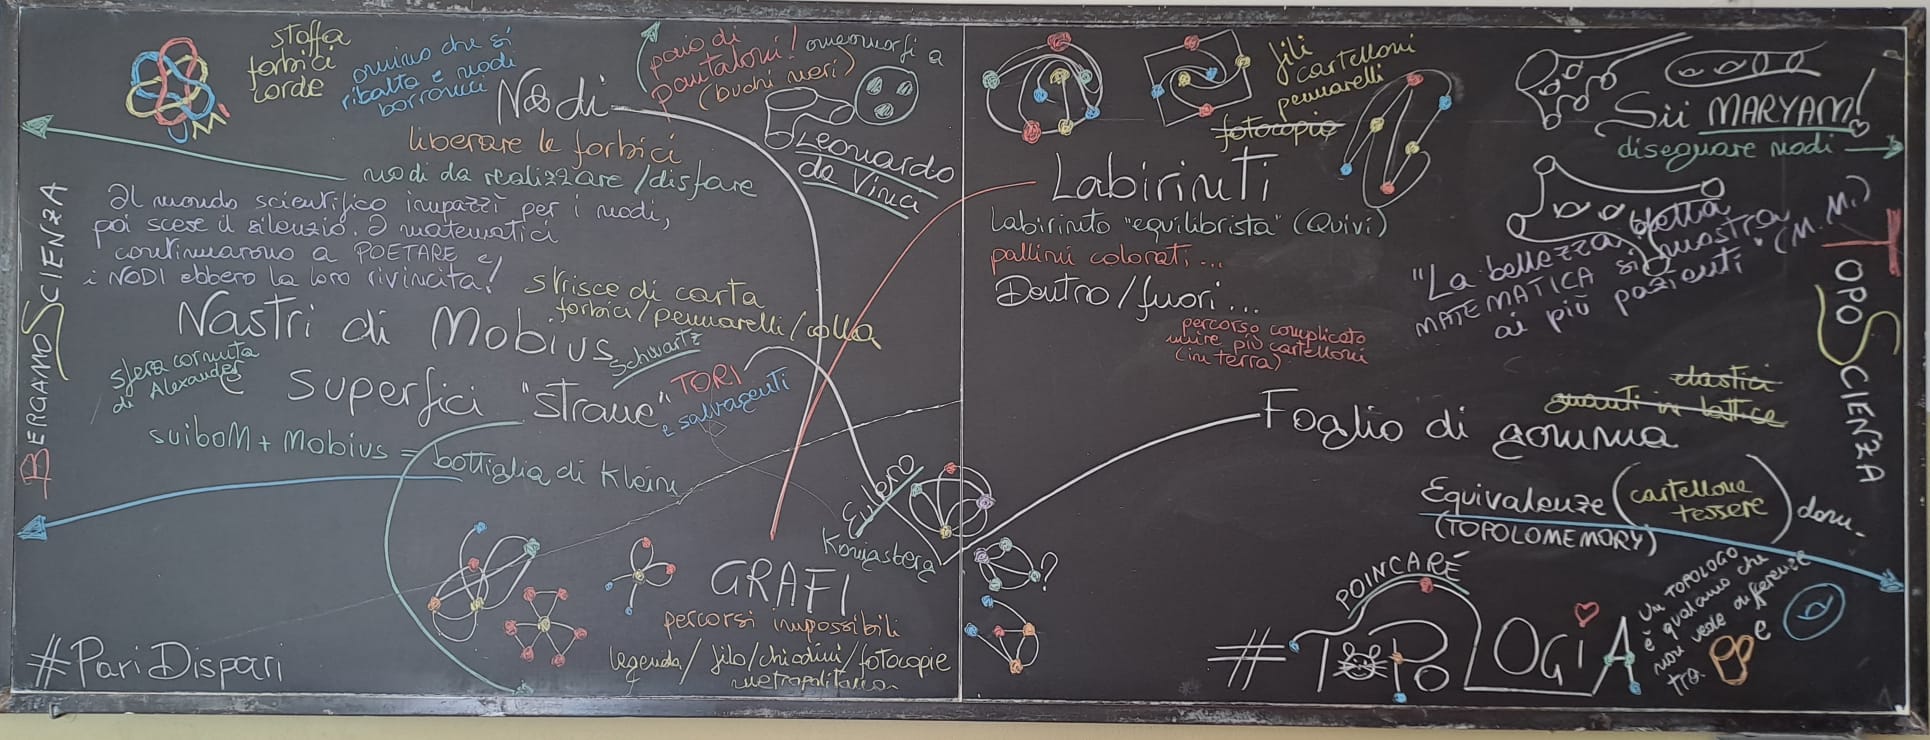 staffa
forbici
corde
omino che si
ribalta e nodi
borromei
Nodi
paio di
pantaloni!
(buchi neri)
omeomorfi a
JM
liberare le forbici
nodi da realizzare/disfare
Leonardo
da Vinci
Il mondo scientifico impazzì per i nodi,
poi scese il silenzio. I matematici
continuarono a POETARE e
i NODI ebbero la loro rivincita!
BERGAMOSCIENZA
strisce di carta
forbici/pennarelli/colla
Nastri di Mobius
Schwartz
sfera cornuta
di Alexander
e Superfici "strane"
TORI
e salvagenti
suiboM + Mobius = bottiglia di Klein
Eulero
Konigsberg
GRAFI
percorsi impossibili
legenda/filo/chiodini/fotocopie
metropolitana
#PariDispari
fili
cartelloni
pennarelli
fotocopie
Labirinti
Labirinto "equilibrista" (Quivi)
pallini colorati...
Dentro/fuori...
percorso complicato
unire più cartelloni
(in terra)
Sii MARYAM!
disegnare nodi
"La bellezza della
MATEMATICA si mostra
ai più pazienti" (M.M.)
TOPOSCIENZA
elastici
guanti in lattice
Foglio di gomma
Equivalenze (cartellone
tessere) dom.
(TOPOLOMEMORY)
?
POINCARÉ
#TOPOLOGIA
Un TOPOLOGO
è qualcuno che
non vede differenze
tra e